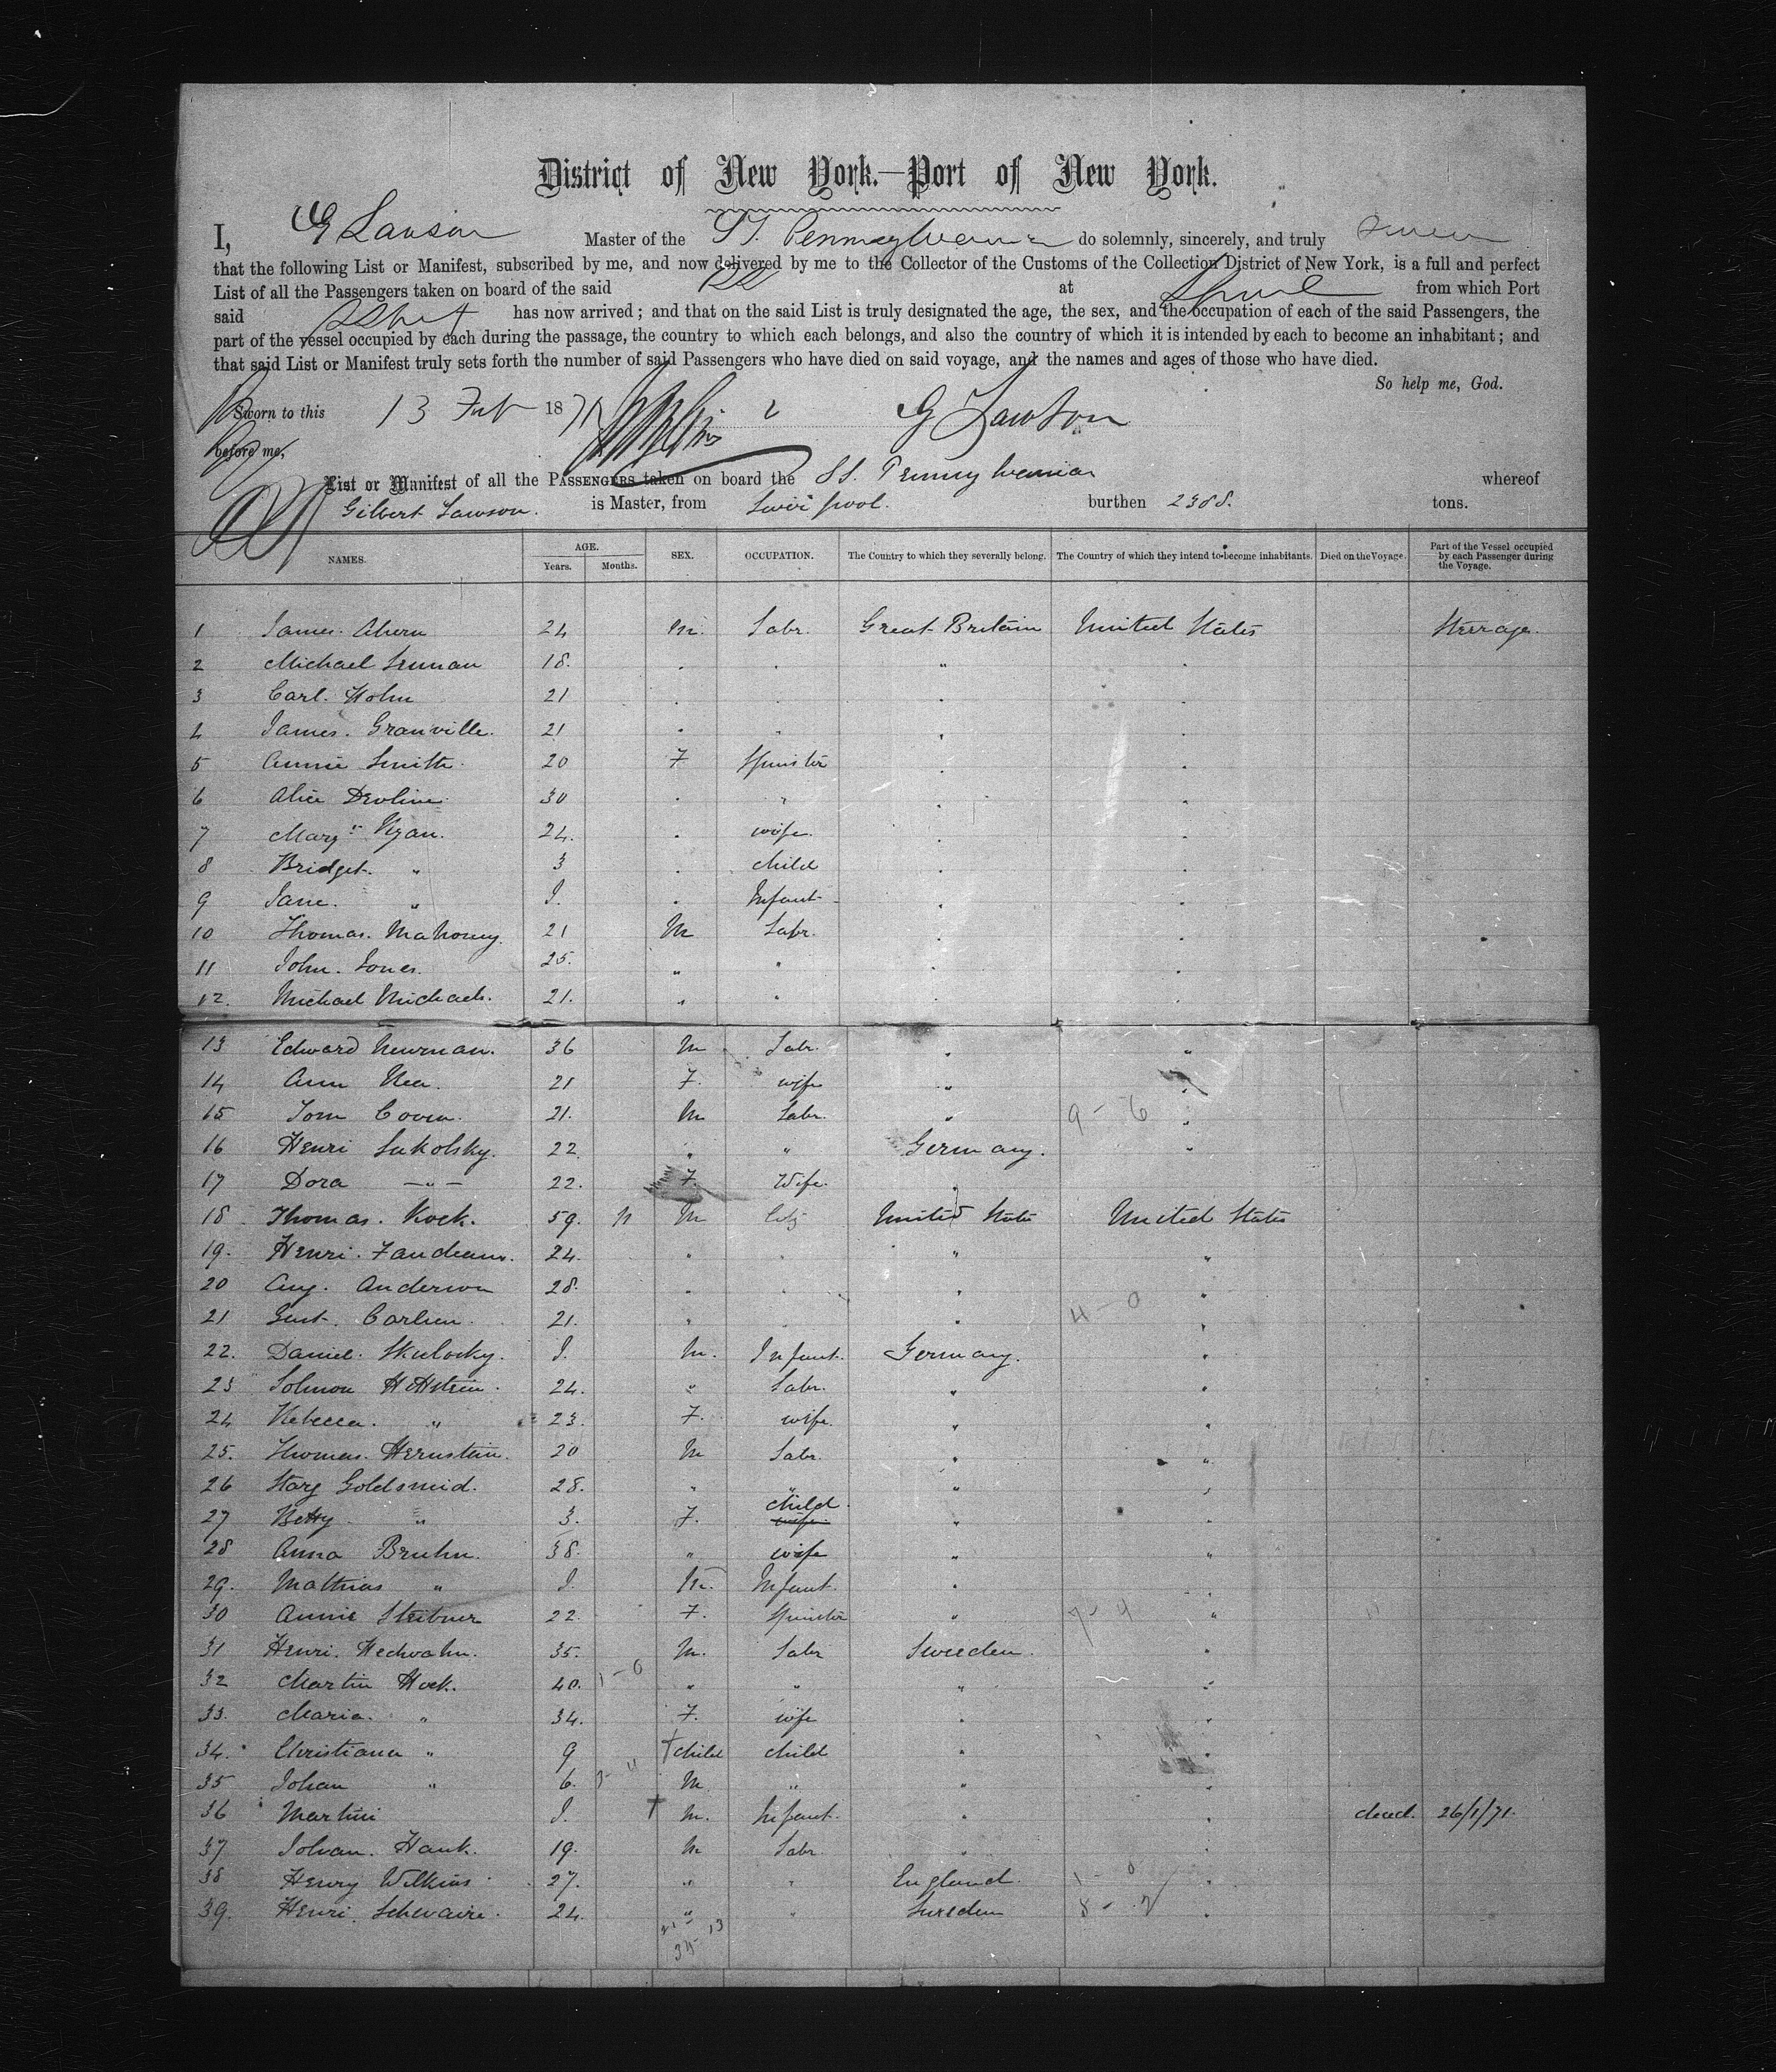 District of New York.—Port of New York.
I, G Lawson Master of the St. Pennsylvania do solemnly, sincerely, and truly swear
that the following List or Manifest, subscribed by me, and now delivered by me to the Collector of the Customs of the Collection District of New York, is a full and perfect
List of all the Passengers taken on board of the said at from which Port
said has now arrived; and that on the said List is truly designated the age, the sex, and the occupation of each of the said Passengers, the
part of the vessel occupied by each during the passage, the country to which each belongs, and also the country of which it is intended by each to become an inhabitant; and
that said List or Manifest truly sets forth the number of said Passengers who have died on said voyage, and the names and ages of those who have died.
So help me, God.
Sworn to this 13 Feb 1871 G Lawson
before me,
List or Manifest of all the Passengers taken on board the SS. Pennsylvania whereof
Gilbert Lawson. is Master, from Liverpool. burthen 2388. tons.
NAMES. AGE. Years. Months. SEX. OCCUPATION. The Country to which they severally belong. The Country of which they intend to become inhabitants. Died on the Voyage. Part of the Vessel occupied by each Passenger during the Voyage.
1 James. Ahern 24 M. Labr. Great Britain United States Steerage.
2 Michael 18. . . " .
3 Carl. Holm 21 . . . .
4 James. Granville. 21 . . . .
5 Annie Smith. 20 F Spinster . .
6 Alice Devlin 30 . " . .
7 Mary Ryan. 24. . wife. . .
8 Bridget. " 3 . child . .
9 Jane. " I. . Infant . .
10 Thomas. Mahoney. 21 M Labr. . .
11 John. Jones. 25. " " . .
12. Michael Michaels. 21. " " . .
13 Edward Newman. 36 M Labr. " "
14 Ann Rea. 21 F. wife " "
15 Tom 21. M Labr. " 9 - 6 "
16 Henri Sukolsky. 22. " " Germany. "
17 Dora — " — 22. F. Wife. "
18 Thomas. Kock. 59. M United States United States
19. Henri. 24. " . " "
20 Aug. Anderson 28. " . " "
21 Gust. Carlsen. 21. " . " 4 - 0 "
22. Daniel. I. M. Infant. Germany. "
23 Solmon 24. " Labr. " "
24 Rebecca. " 23. F. wife. " "
25. Thomas. Hernstein. 20 M Labr. " "
26 Goldsmid. 28. " " " "
27 Betty " 3. F. child wife " "
28 Anna Bruhn. 38. " wife " "
29. Mathias " I. M. Infant. " "
30 Annie 22. F. Spinster " 7 - 4 "
31 Henri. 35. M. Labr Sweeden. "
32 Martin Hock. 40. 1 - 0 " " " "
33. Maria. " 34. F. wife " "
34. Christiana " 9 † child child " "
35 Johan " 6. M. " " "
36 Martin I. † M. Infant. " " dead. 26/1/71.
37 Johan. Hank. 19. M Labr " "
38 Henry Wilkins 27. " " England. 1 - 0 "
39. Henri. 24. " " Sweden 8 - 2 "